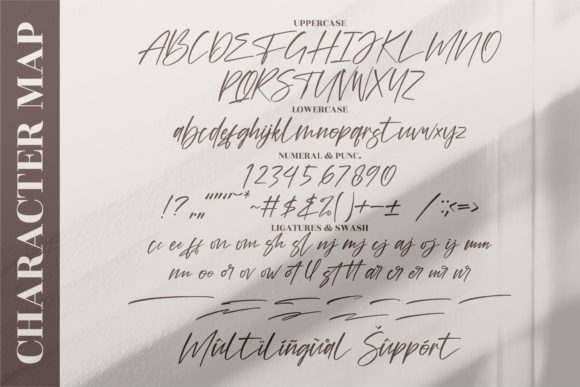 CHARACTER MAP
UPPERCASE
ABCDEFGHIJKLMNO
PQRSTUVWXYZ
LOWERCASE
abcdefghijklmnopqrstuvwxyz
NUMERAL & PUNC.
1234567890
!?,,""''"~* ~#$&%()+−± /:;<=>
LIGATURES & SWASH
cc ee ff on om gh gl nj mj cj aj oj ij mm
nn oo or ov ow ot ll gt tt ar cr er mr ur
Mùltilïñgùàl Šùppórt